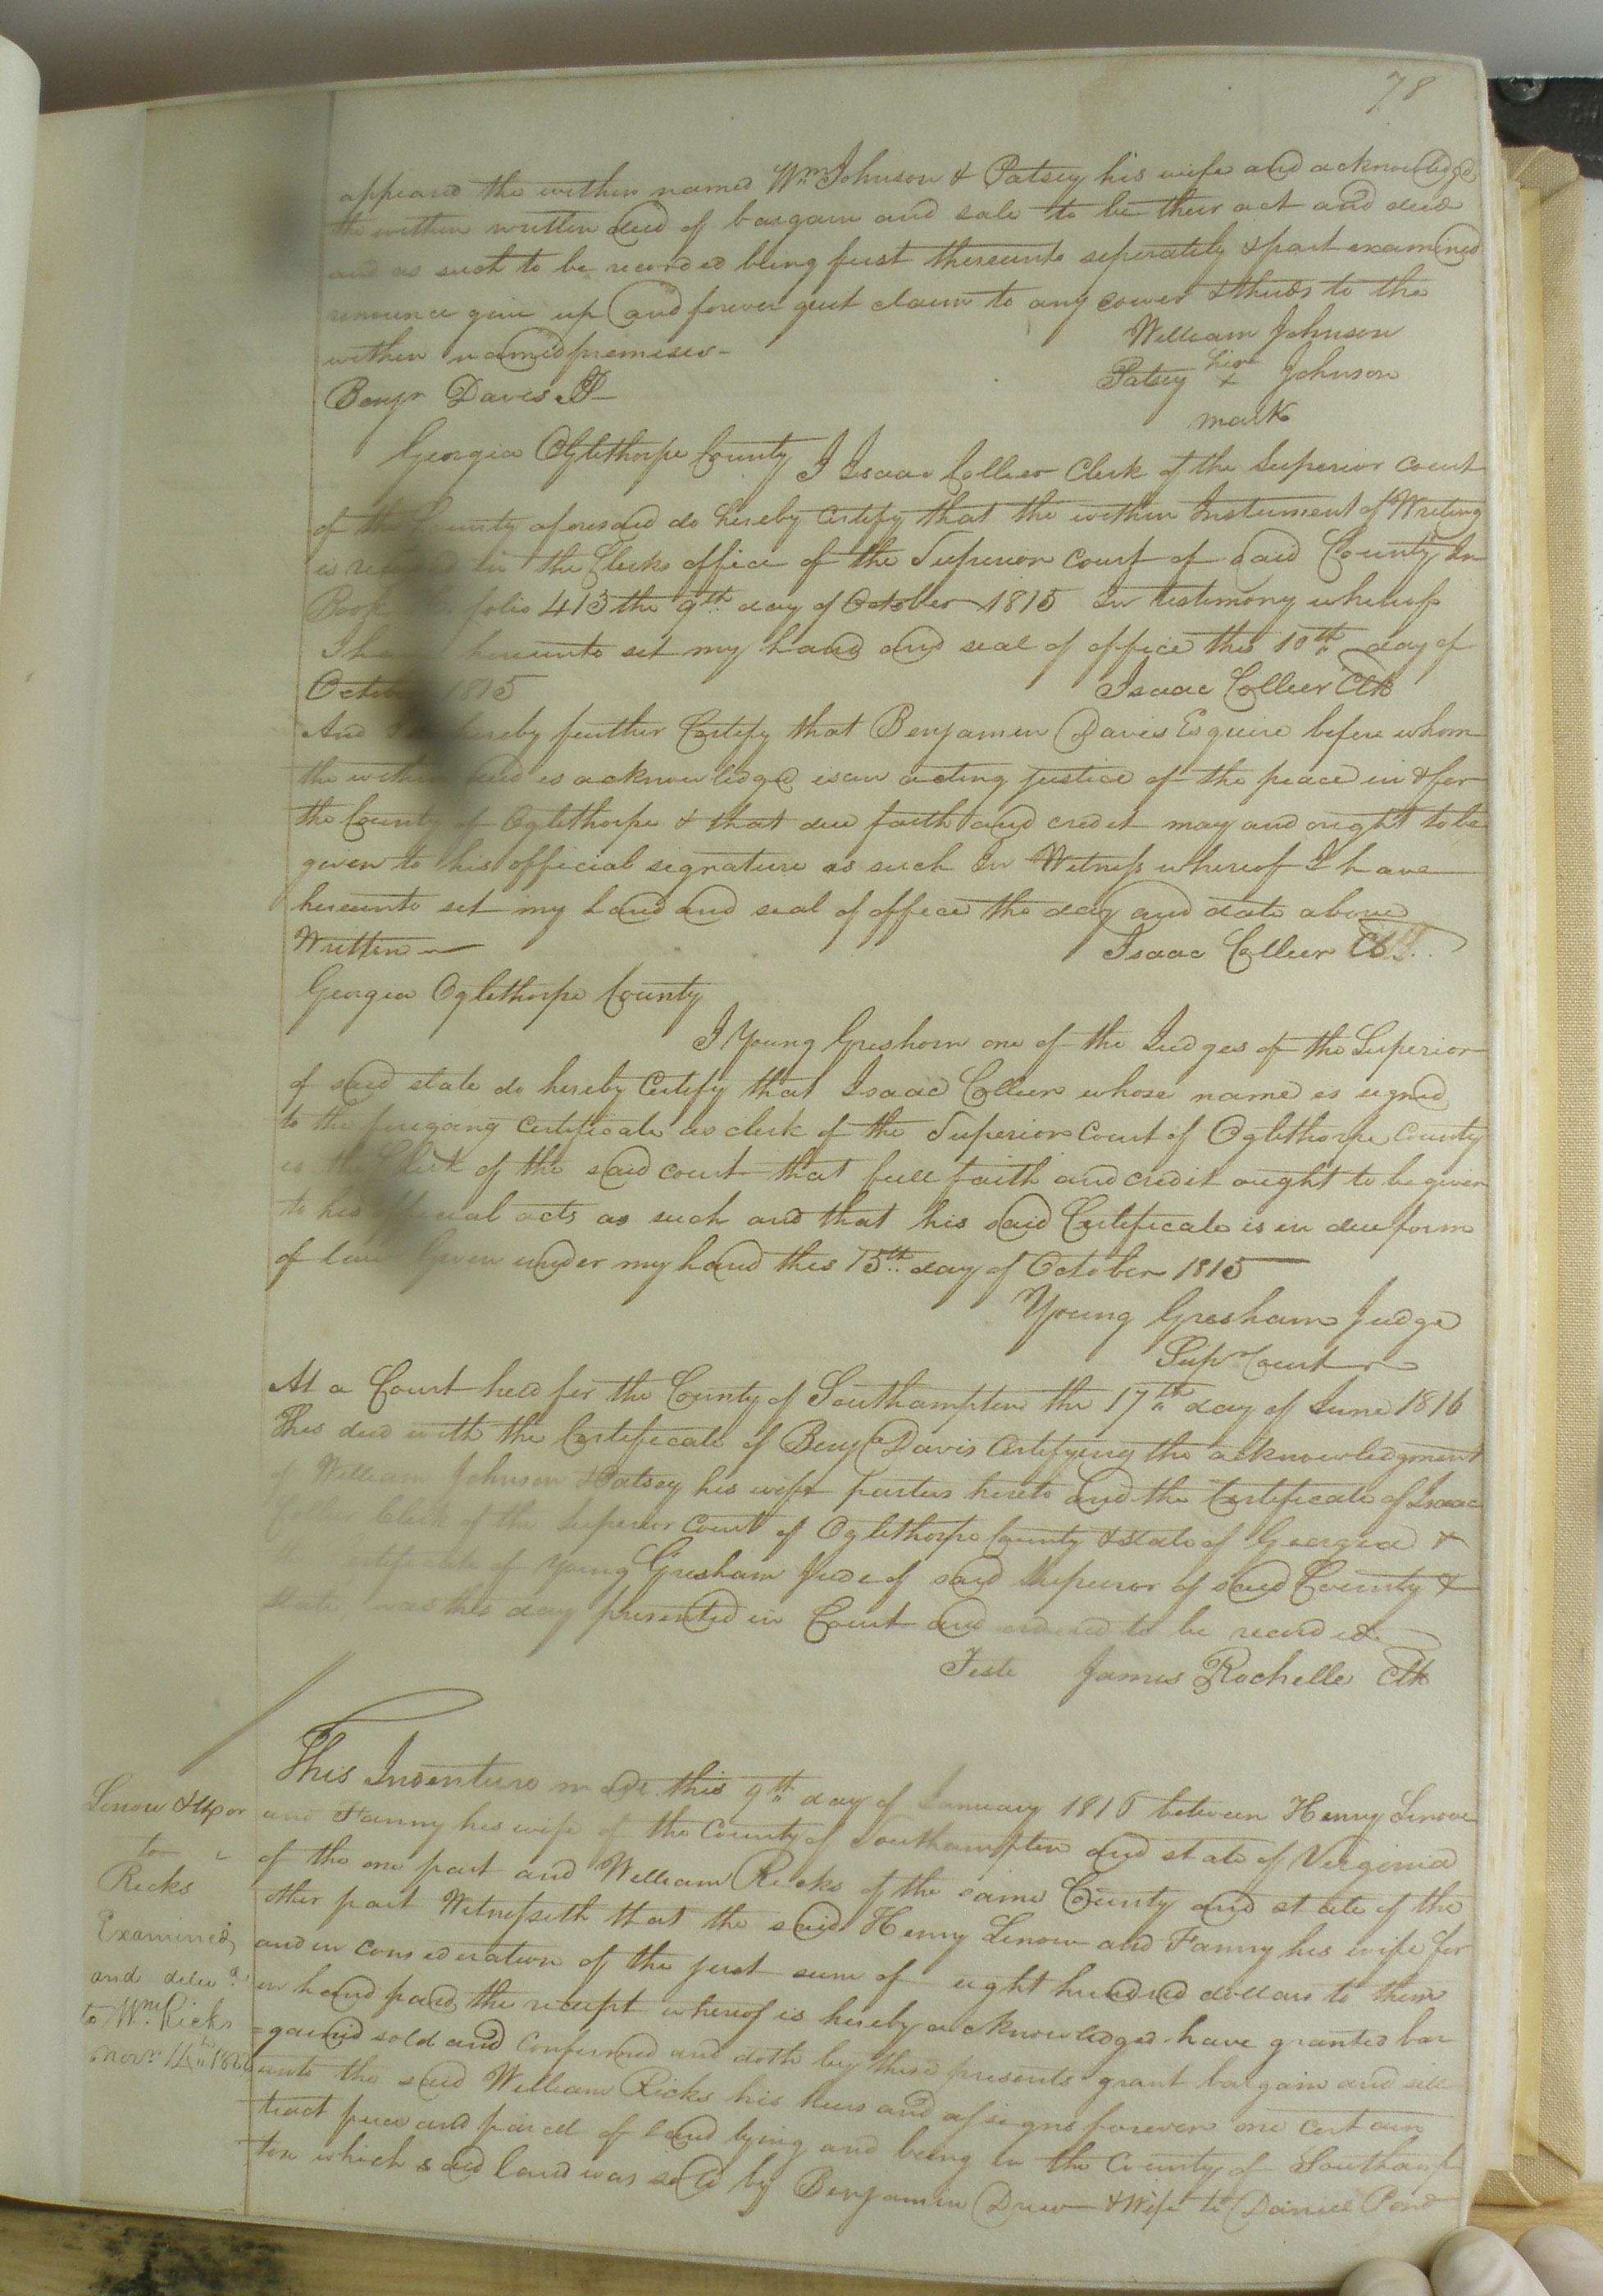 78
appeared the within named Wm Johnson & Patsey his wife and acknowledged
the within written deed of bargain and sale to be their act and deed
and as such to be recorded being first thereunto seperately & part examined
renounce give up and forever quit claim to any cower & thirds to the
within named premises
William Johnson
Patsey her x Johnson
mark
Benjn Davis JP
Georgia Oglethorpe County I Isaac Collier Clerk of the Superior Court
of the County aforesaid do hereby certify that the within Instrument of Writing
is in the Clerks office of the Superior Court of said County In
Book folio 413 the 9th day of October 1815 In testimony whereof
I have hereunto set my hand and seal of office this 10th day of
October 1815 Isaac Collier Clk
And I do hereby further Certify that Benjamin Davis Esquire before whom
the within deed is acknowledged is an acting justice of the peace in & for
the County of Oglethorpe & that due faith and credit may and ought to be
given to his official signature as such In Witness whereof I have
hereunto set my hand and seal of office the day and date above
Written Isaac Collier Clk
Georgia Oglethorpe County
I Young Gresham one of the Judges of the Superior
of said state do hereby Certify that Isaac Collier whose name is signed
to the foregoing Certificate as clerk of the Superior Court of Oglethorpe County
is the Clerk of the said court that full faith and credit ought to be given
to his official acts as such and that his said Certificate is in due form
of law Given under my hand this 15th day of October 1815
Young Gresham Judge
Supr Court
At a Court held for the County of Southampton the 17th day of June 1816
This deed with the Certificate of Benja Davis Certifying the acknowledgment
of William Johnson & Patsey his wife parties hereto and the Certificate of Isaac
Collier Clerk of the Superior Court of Oglethorpe County & state of Georgia &
Certificate of Young Gresham Jude of said Superior of said County &
State, was this day presented in Court and ordered to be recorded
Teste James Rochelle Clk
Lenow & uxor
to
Ricks
Examined
and deliv'd
to Wm. Ricks
Novr. 14th 182
This Indenture made this 9th day of January 1816 between Henry Lenow
and Fanny his wife of the County of Southampton and state of Virginia
of the one part and William Ricks of the same County and state of the
other part Witnesseth that the said Henry Lenow and Fanny his wife for
and in consideration of the just sum of eight hundred dollars to them
in hand paid the receipt whereof is hereby acknowledged have granted bar
=gained sold and confirmed and doth by these presents grant bargain and sell
unto the said William Ricks his heirs and assigns forever one certain
tract piece and parcel of land lying and being in the County of Southamp
ton which said land was sold by Benjamin Drew & Wife to Daniel Pond